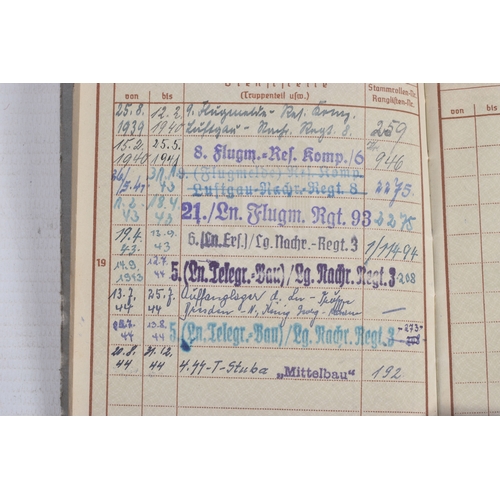 Dienststelle
von bis (Truppenteil usw.) Stammrollen-Nr. Ranglisten-Nr.
25.8. 12.2. 9. Flugmelde-Res. Komp.
1939 1940 Luftgau-Nachr. Regt. 8. 259
15.2. 25.5.
1940 1941 8. Flugm.-Res. Komp./6 946
31.1. 9. (Flugmelde) Res. Komp.
43 Luftgau-Nachr.-Regt 8 2275.
1.2. 18.4.
43 43 21./Ln. Flugm. Rgt. 93 2275
19.4. 13.9.
43. 43 6.(Ln. Ers)/Lg. Nachr.-Regt.3 1/11494
19 14.9. 12.7.
1943 44 5.(Ln. Telegr.-Bau)/Lg. Nachr. Regt.3 208
13.7. 25.7. Auffanglager d. Ln-
44 44 Dresden —
19.8. -273-
44 44 5.(Ln. Telegr.-Bau)/Lg. Nachr. Regt.3
20.8. 21.12.
44 44 4.SS-T-Stuba „Mittelbau" 192